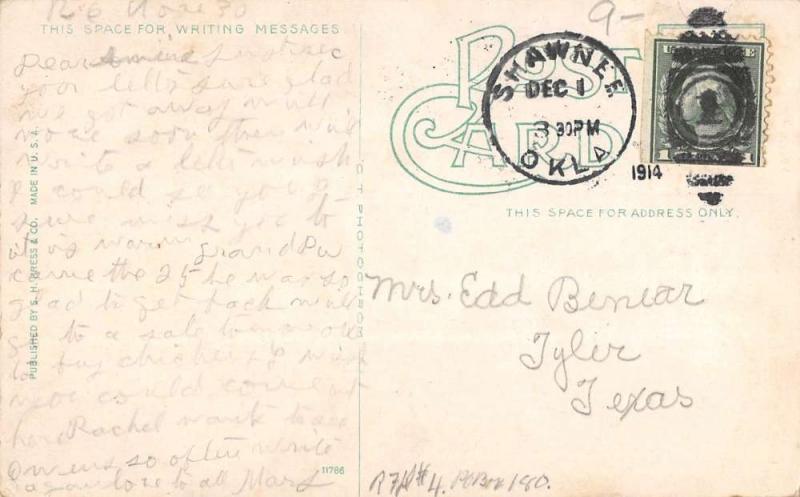 THIS SPACE FOR WRITING MESSAGES
Dear
your letter sure glad
you got away
more soon then
write a letter wish
I could see you
sure miss you
it is warm grandPa
came the 25 he was so
glad to get back
go to a sale
to buy chickens wish
you could come
here Rachel wants to see
Owens so often write
again love to all Mary
PUBLISHED BY S. H. KRESS & CO. MADE IN U. S. A.
11786
POST
CARD
SHAWNEE
DEC 1
3 30PM
OKLA
1914
1 1
THIS SPACE FOR ADDRESS ONLY.
Mrs. Edd Benear
Tyler
Texas
#4. PO Box 180.